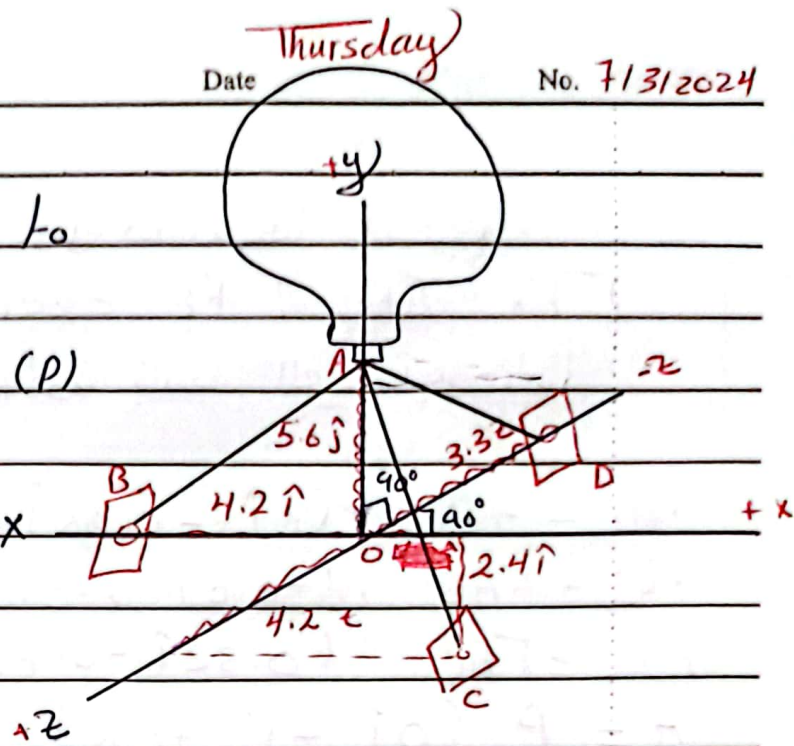 Thursday
Date No. 7/3/2024
+y
to
(P)
A
-z
5.6 ĵ
3.3z
B
90°
D
4.2 î
90°
X
+ x
O
2.4 î
4.2 z
C
+Z